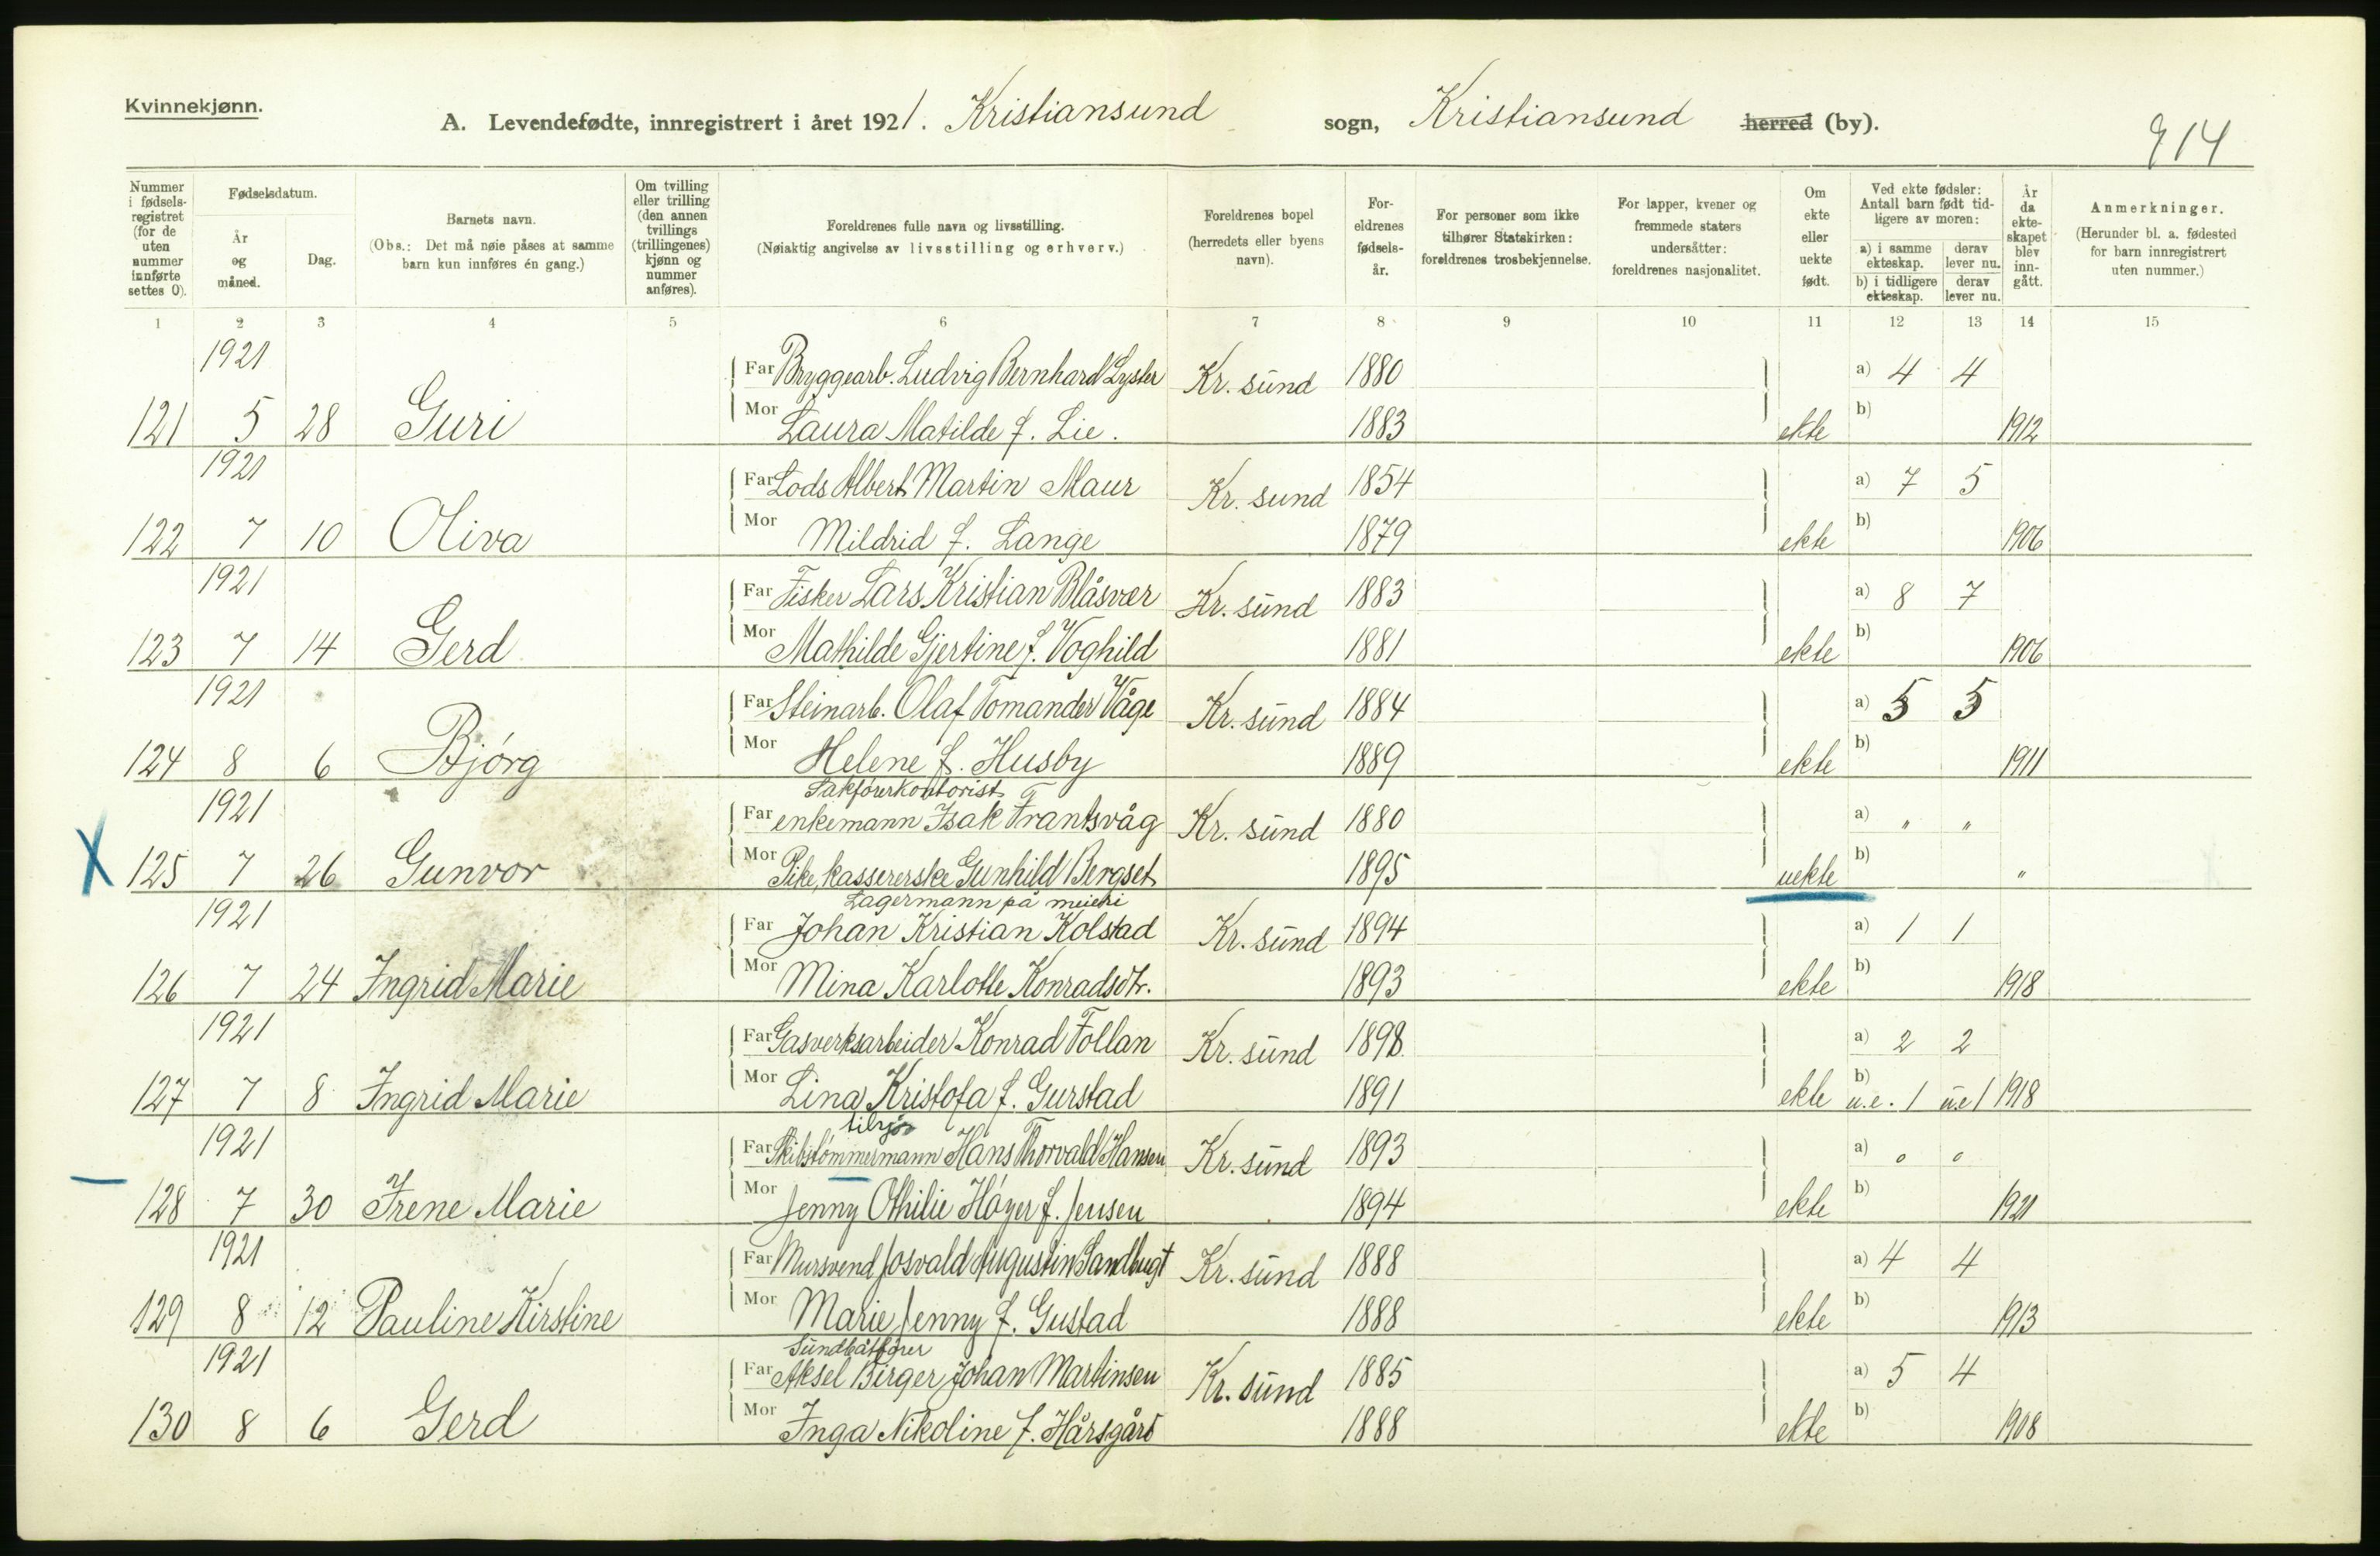 Kvinnekjønn.
A. Levendefødte, innregistrert i året 1921. Kristiansund sogn, Kristiansund herred (by).
914
Nummer i fødsels-registret (for de uten nummer innførte settes 0).
Fødselsdatum.
År og måned.
Dag.
Barnets navn.
(Obs.: Det må nøie påses at samme barn kun innføres én gang.)
Om tvilling eller trilling (den annen tvillings (trillingenes) kjønn og nummer anføres).
Foreldrenes fulle navn og livsstilling.
(Nøiaktig angivelse av livsstilling og erhverv.)
Foreldrenes bopel (herredets eller byens navn).
For-eldrenes fødsels-år.
For personer som ikke tilhører Statskirken: foreldrenes trosbekjennelse.
For lapper, kvener og fremmede staters undersåtter: foreldrenes nasjonalitet.
Om ekte eller uekte født.
Ved ekte fødsler: Antall barn født tid-ligere av moren:
a) i samme ekteskap.
derav lever nu.
b) i tidligere ekteskap.
derav lever nu.
År da ekte-skapet blev inn-gått.
Anmerkninger.
(Herunder bl. a. fødested for barn innregistrert uten nummer.)
1 2 3 4 5 6 7 8 9 10 11 12 13 14 15
1921 Far Bryggearb. Ludvig Bernhard Lyster Kr. sund 1880 a) 4 4
121 5 28 Guri Mor Laura Matilde f. Lie. 1883 ekte b) 1912
1921 Far Lods Albert Martin Maur Kr. sund 1854 a) 7 5
122 7 10 Oliva Mor Mildrid f. Lange 1879 ekte b) 1906
1921 Far Fisker Lars Kristian Blåsvær Kr. sund 1883 a) 8 7
123 7 14 Gerd Mor Mathilde Gjertine f. Voghild 1881 ekte b) 1906
1921 Far Steinarb. Olaf Tomander Våge Kr. sund 1884 a) 5 5
124 8 6 Bjørg Mor Helene f. Husby 1889 ekte b) 1911
Sakførerkontorist
1921 Far enkemann Isak Frantsvåg Kr. sund 1880 a) " "
X 125 7 26 Gunvor Mor Pike, kassererske Gunhild Bergset 1895 uekte b) "
Lagermann på meieri
1921 Far Johan Kristian Kolstad Kr. sund 1894 a) 1 1
126 7 24 Ingrid Marie Mor Mina Karlotte Konradsdtr. 1893 ekte b) 1918
1921 Far Gasverksarbeider Konrad Follan Kr. sund 1898 a) 2 2
127 7 8 Ingrid Marie Mor Lina Kristofa f. Gurstad 1891 ekte b) u.e. 1 u.e 1 1918
tilsjøs
1921 Far Skibstømmermann Hans Thorvald Hansen Kr. sund 1893 a) 0 0
128 7 30 Irene Marie Mor Jenny Othilie Høyer f. Jensen 1894 ekte b) 1921
1921 Far Mursvend Josvald Augustin Sandbugt Kr. sund 1888 a) 4 4
129 8 12 Pauline Kirstine Mor Marie Jenny f. Gustad 1888 ekte b) 1913
Sundbåtfører
1921 Far Aksel Birger Johan Martinsen Kr. sund 1885 a) 5 4
130 8 6 Gerd Mor Inga Nikoline f. Hårsgård 1888 ekte b) 1908